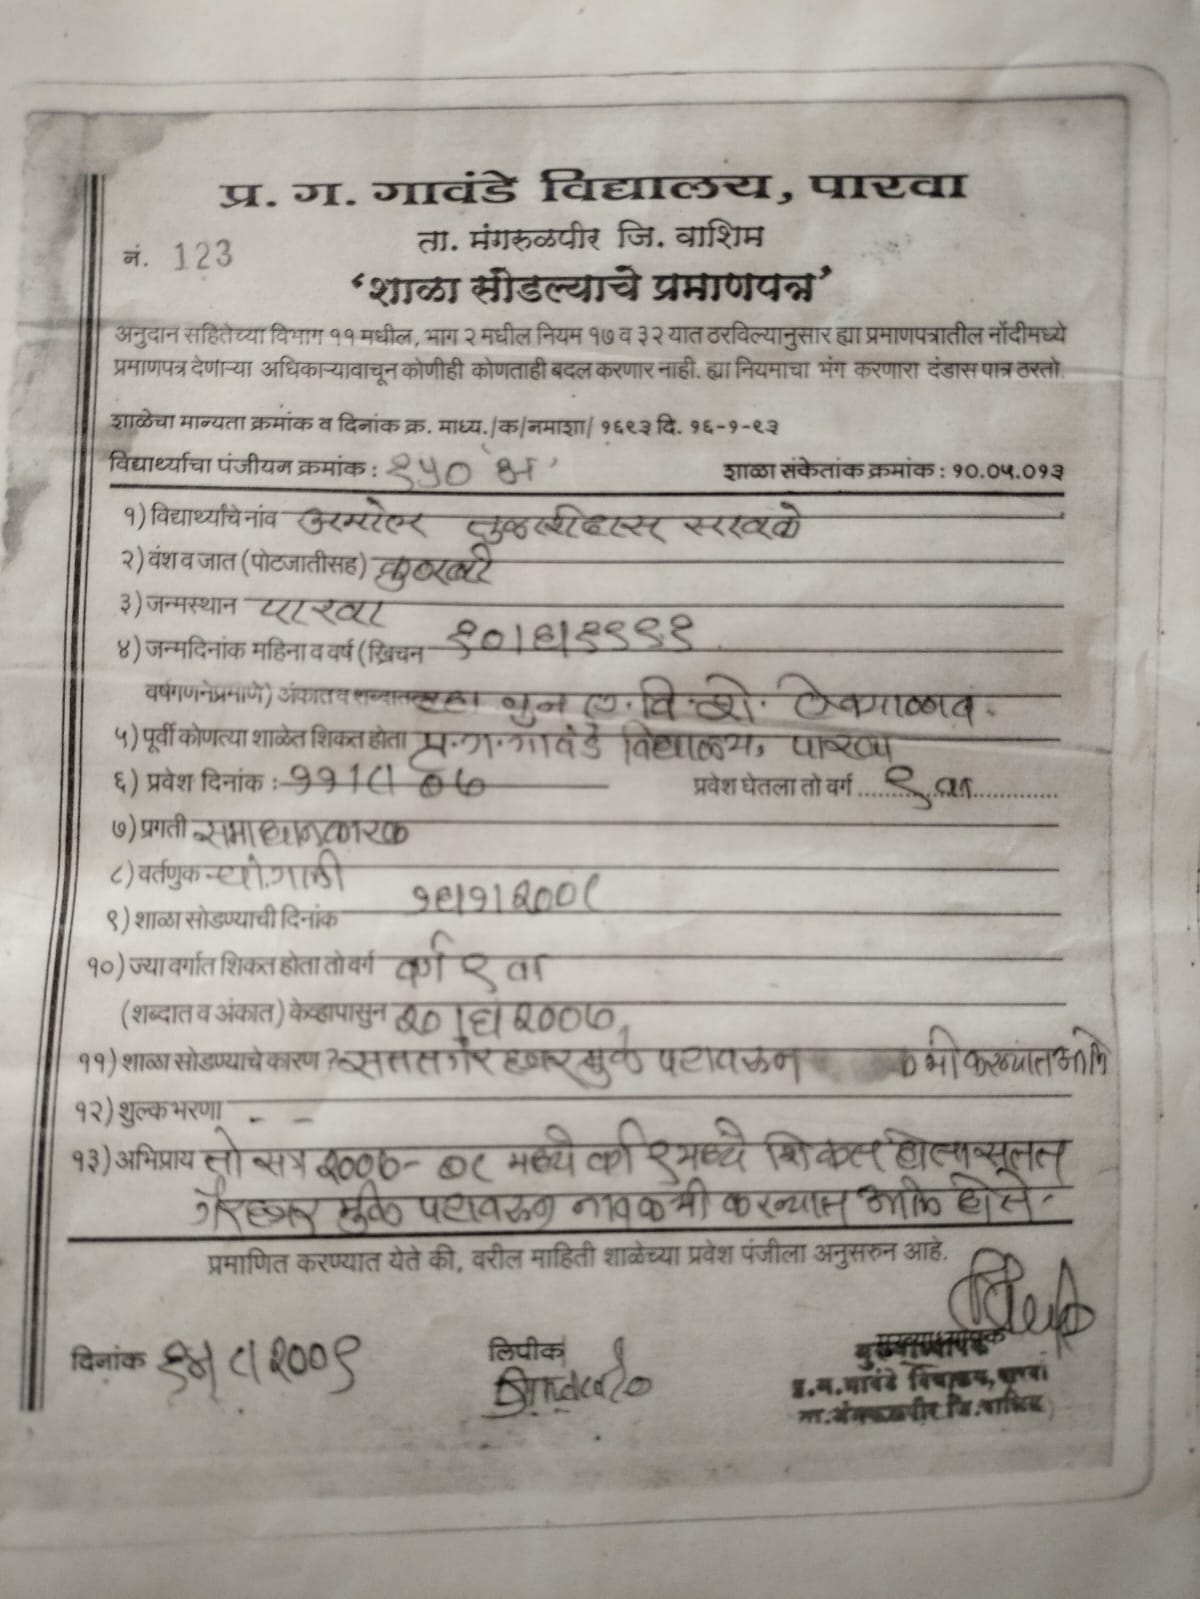 प्र. ग. गावंडे विद्यालय, पारवा
ता. मंगरुळपीर जि. वाशिम
नं. 123
‘शाळा सोडल्याचे प्रमाणपत्र’
अनुदान सहितेच्या विभाग ११ मधील, भाग २ मधील नियम १७ व ३२ यात ठरविल्यानुसार ह्या प्रमाणपत्रातील नोंदीमध्ये
प्रमाणपत्र देणाऱ्या अधिकाऱ्यावाचून कोणीही कोणताही बदल करणार नाही. ह्या नियमाचा भंग करणारा दंडास पात्र ठरतो.
शाळेचा मान्यता क्रमांक व दिनांक क्र. माध्य./क/नमाशा/ १६९३ दि. १६-१-९३
विद्यार्थ्याचा पंजीयन क्रमांक : १५० 'अ' शाळा संकेतांक क्रमांक : १०.०५.०१३
१) विद्यार्थ्याचे नांव अमोल तुळशीदास सावळे
२) वंश व जात (पोटजातीसह) कुणबी
३) जन्मस्थान पारवा
४) जन्मदिनांक महिना व वर्ष (ख्रिचन १०।६।१९९१
वर्षगणनेप्रमाणे) अंकात व शब्दात दहा जुन ए.वि.शे. ऐक्याण्णव.
५) पूर्वी कोणत्या शाळेत शिकत होता प्र.ग.गावंडे विद्यालय, पारवा
६) प्रवेश दिनांक : ११।८।०७ प्रवेश घेतला तो वर्ग ९ वा
७) प्रगती समाधानकारक
८) वर्तणुक चांगली
९) शाळा सोडण्याची दिनांक १६।१।२००८
१०) ज्या वर्गात शिकत होता तो वर्ग वर्ग ९ वा
(शब्दात व अंकात) केव्हापासुन २०।६।२००७
११) शाळा सोडण्याचे कारण ? सतत गैरहजर मुळे पटावरून कमी करण्यांत आले
१२) शुल्क भरणा - -
१३) अभिप्राय तो सत्र २००७-०८ मध्ये वर्ग ९ मध्ये शिकत होता सतत
गैरहजर मुळे पटावरून नाव कमी करण्यात आले होते.
प्रमाणित करण्यात येते की, वरील माहिती शाळेच्या प्रवेश पंजीला अनुसरुन आहे.
दिनांक १४।८।२००९ लिपीक
मुख्याध्यापक
प्र.ग.गावंडे विद्यालय, पारवा
ता.मंगरुळपीर जि.वाशिम